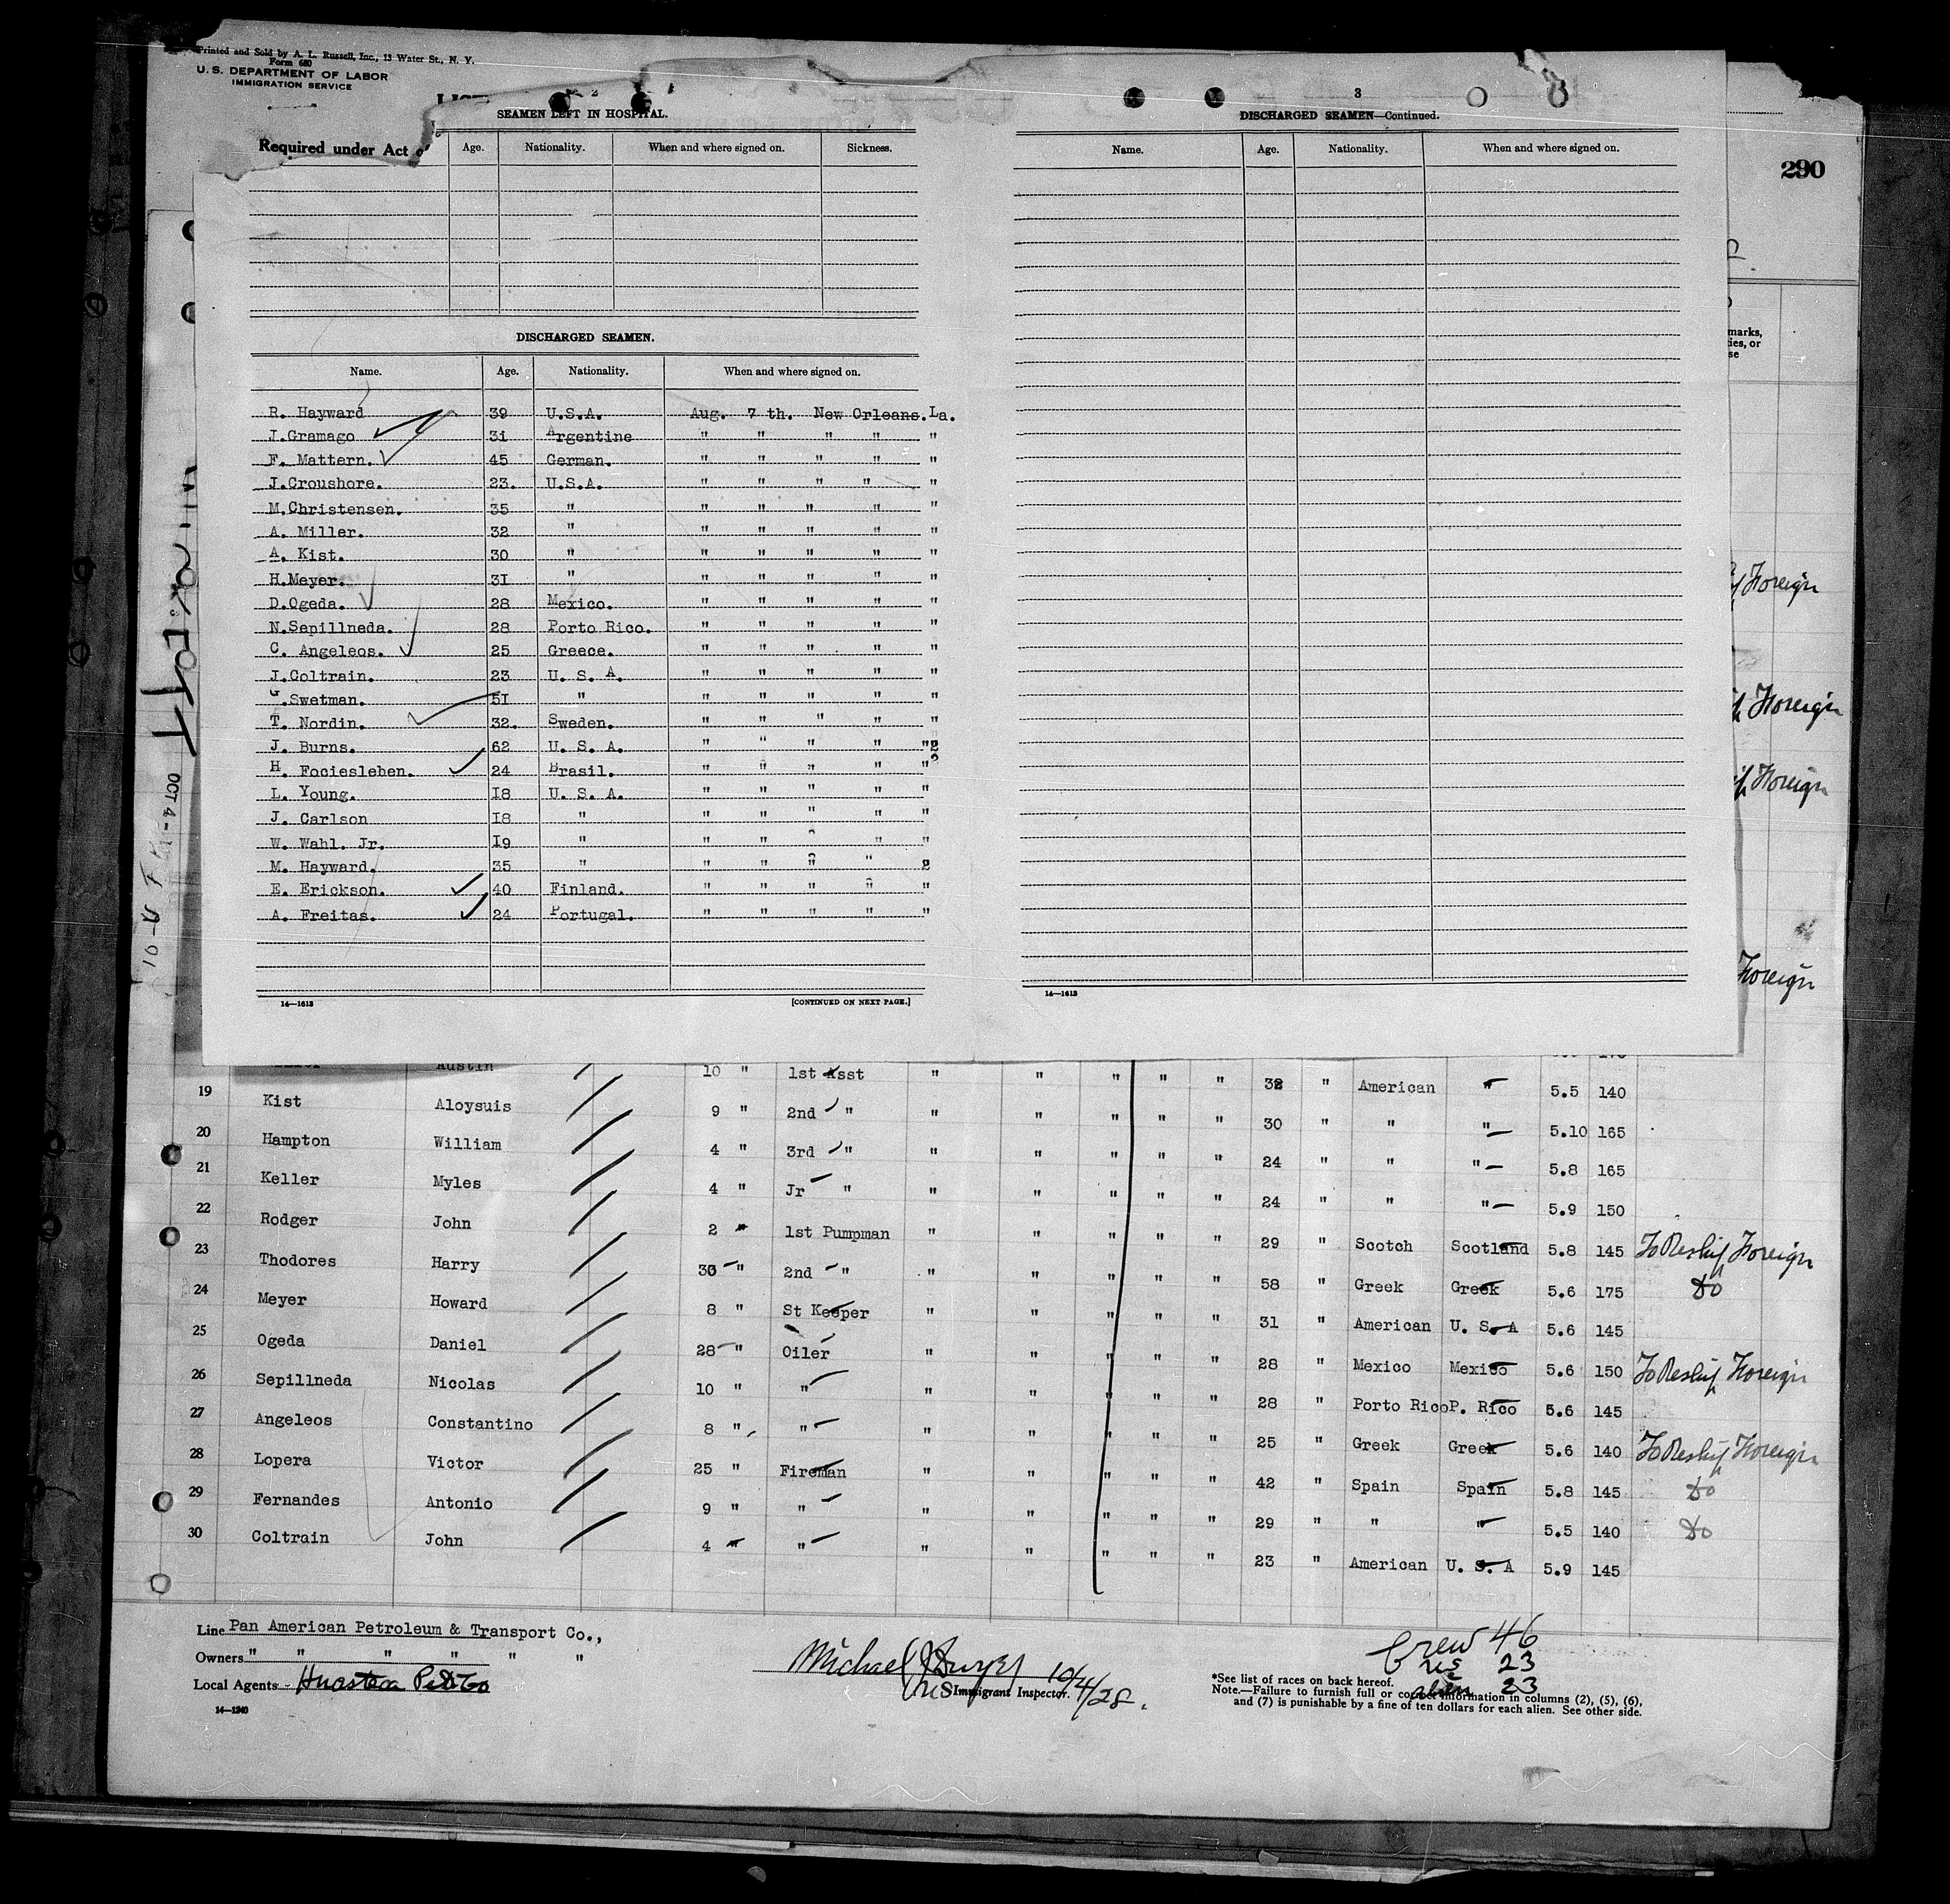 Printed and Sold by A. L. Russell, Inc., 13 Water St., N. Y.
Form 680
U. S. DEPARTMENT OF LABOR
IMMIGRATION SERVICE
Required under Act
290
2
SEAMEN LEFT IN HOSPITAL.
Age. Nationality. When and where signed on. Sickness.
DISCHARGED SEAMEN.
Name. Age. Nationality. When and where signed on.
R. Hayward 39 U.S.A. Aug. 7 th. New Orleans. La.
J.Gramago 31 Argentine " " " " "
F. Mattern. 45 German. " " " " "
J.Croushore. 23. U.S.A. " " " " "
M.Christensen. 35 " " " " " "
A. Miller. 32 " " " " " "
A. Kist. 30 " " " " " "
H.Meyer. 31 " " " " " "
D.Ogeda. 28 Mexico. " " " " "
N.Sepillneda. 28 Porto Rico. " " " " "
C. Angeleos. 25 Greece. " " " " "
J.Coltrain. 23 U. S. A. " " " " "
G.Swetman. 51 " " " " " "
T. Nordin. 32. Sweden. " " " " "
J. Burns. 62 U. S. A. " " " " "
H. Fociesleben. 24 Brasil. " " " " "
L. Young. 18 U. S. A. " " " " "
J. Carlson 18 " " " " " "
W. Wahl. Jr. 19 " " " " " "
M. Hayward. 35 " " " " " 2
E. Erickson. 40 Finland. " " " " "
A. Freitas. 24 Portugal. " " " " "
14—1613 [CONTINUED ON NEXT PAGE.]
3
DISCHARGED SEAMEN—Continued.
Name. Age. Nationality. When and where signed on.
14—1613
marks,
ties, or
se
Foreign
Foreign
Foreign
Foreign
OCT 4-
Austin 10 " 1st Asst " " " " " 32 " American " 5.5 140
19 Kist Aloysuis 9 " 2nd " " " " " " 30 " " " 5.10 165
20 Hampton William 4 " 3rd " " " " " " 24 " " " 5.8 165
21 Keller Myles 4 " Jr " " " " " " 24 " " " 5.9 150
22 Rodger John 2 " 1st Pumpman " " " " " 29 " Scotch Scotland 5.8 145 To Reship Foreign
23 Thodores Harry 30 " 2nd " " " " " " 58 " Greek Greek 5.6 175 Do
24 Meyer Howard 8 " St Keeper " " " " " 31 " American U. S. A 5.6 145
25 Ogeda Daniel 28 " Oiler " " " " " 28 " Mexico Mexico 5.6 150 To Reship Foreign
26 Sepillneda Nicolas 10 " " " " " " " 28 " Porto Rico P. Rico 5.6 145
27 Angeleos Constantino 8 " " " " " " " 25 " Greek Greek 5.6 140 To Reship Foreign
28 Lopera Victor 25 " Fireman " " " " " 42 " Spain Spain 5.8 145 Do
29 Fernandes Antonio 9 " " " " " " " 29 " " " 5.5 140 Do
30 Coltrain John 4 " " " " " " " 23 " American U. S. A 5.9 145
Line Pan American Petroleum & Transport Co.,
Owners " " " " " "
Local Agents - Huasteca Pet Co
14—1240
Michael J Dwyer 10/4/28.
US Immigrant Inspector.
Crew 46
US 23
alien 23
*See list of races on back hereof.
Note.—Failure to furnish full or correct information in columns (2), (5), (6),
and (7) is punishable by a fine of ten dollars for each alien. See other side.